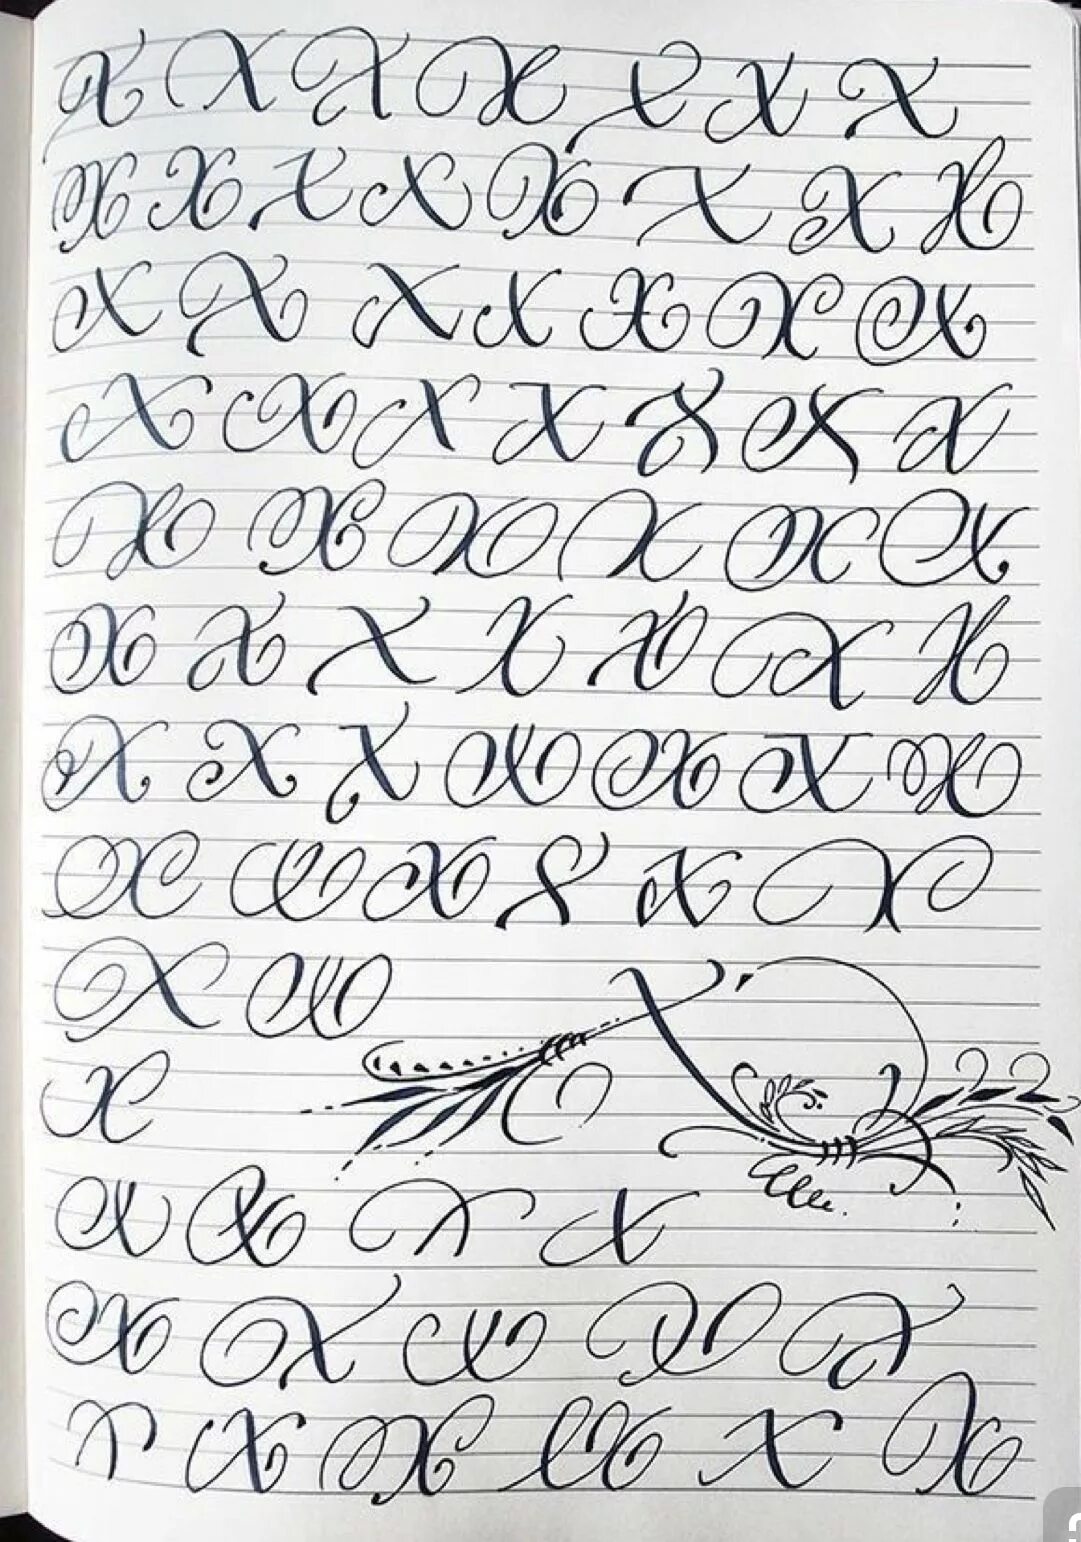 X X X X X X X
X X X X X X X X
X X X X X X X
X X X X X X X
X X X X X X
X X X X X X X
X X X X X X X
X X X X X X
X X
X
X
X X X X
X X X X X
X X X X X X